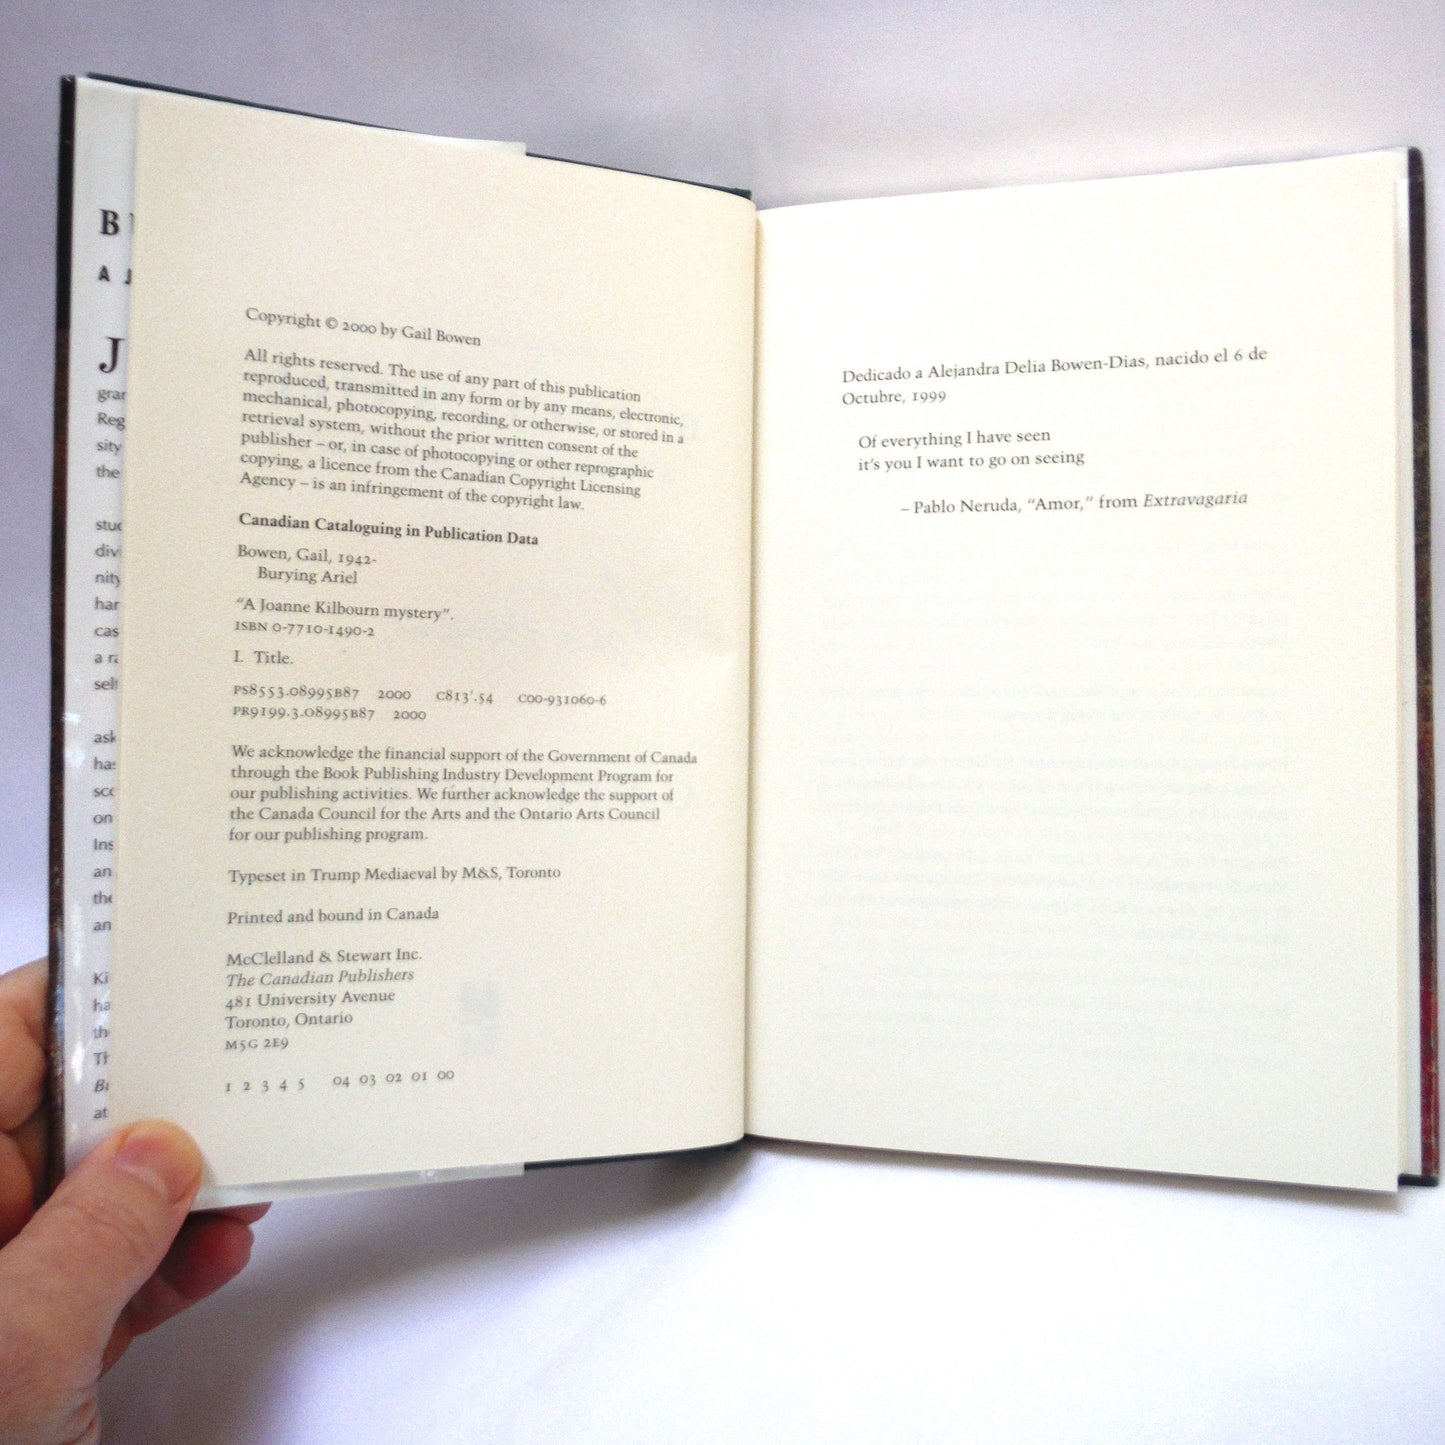 B
A J
J
gran
Reg
sity
the
stud
divi
nity
har
cas
a ra
self
ask
has
sco
on
Ins
an
the
an
Ki
ha
th
Th
Bu
at
Copyright © 2000 by Gail Bowen
All rights reserved. The use of any part of this publication
reproduced, transmitted in any form or by any means, electronic,
mechanical, photocopying, recording, or otherwise, or stored in a
retrieval system, without the prior written consent of the
publisher – or, in case of photocopying or other reprographic
copying, a licence from the Canadian Copyright Licensing
Agency – is an infringement of the copyright law.
Canadian Cataloguing in Publication Data
Bowen, Gail, 1942-
Burying Ariel
“A Joanne Kilbourn mystery”.
ISBN 0-7710-1490-2
I. Title.
PS8553.08995B87 2000 C813'.54 C00-931060-6
PR9199.3.08995B87 2000
We acknowledge the financial support of the Government of Canada
through the Book Publishing Industry Development Program for
our publishing activities. We further acknowledge the support of
the Canada Council for the Arts and the Ontario Arts Council
for our publishing program.
Typeset in Trump Mediaeval by M&S, Toronto
Printed and bound in Canada
McClelland & Stewart Inc.
The Canadian Publishers
481 University Avenue
Toronto, Ontario
M5G 2E9
1 2 3 4 5 04 03 02 01 00
Dedicado a Alejandra Delia Bowen-Dias, nacido el 6 de
Octubre, 1999
Of everything I have seen
it's you I want to go on seeing
– Pablo Neruda, “Amor,” from Extravagaria